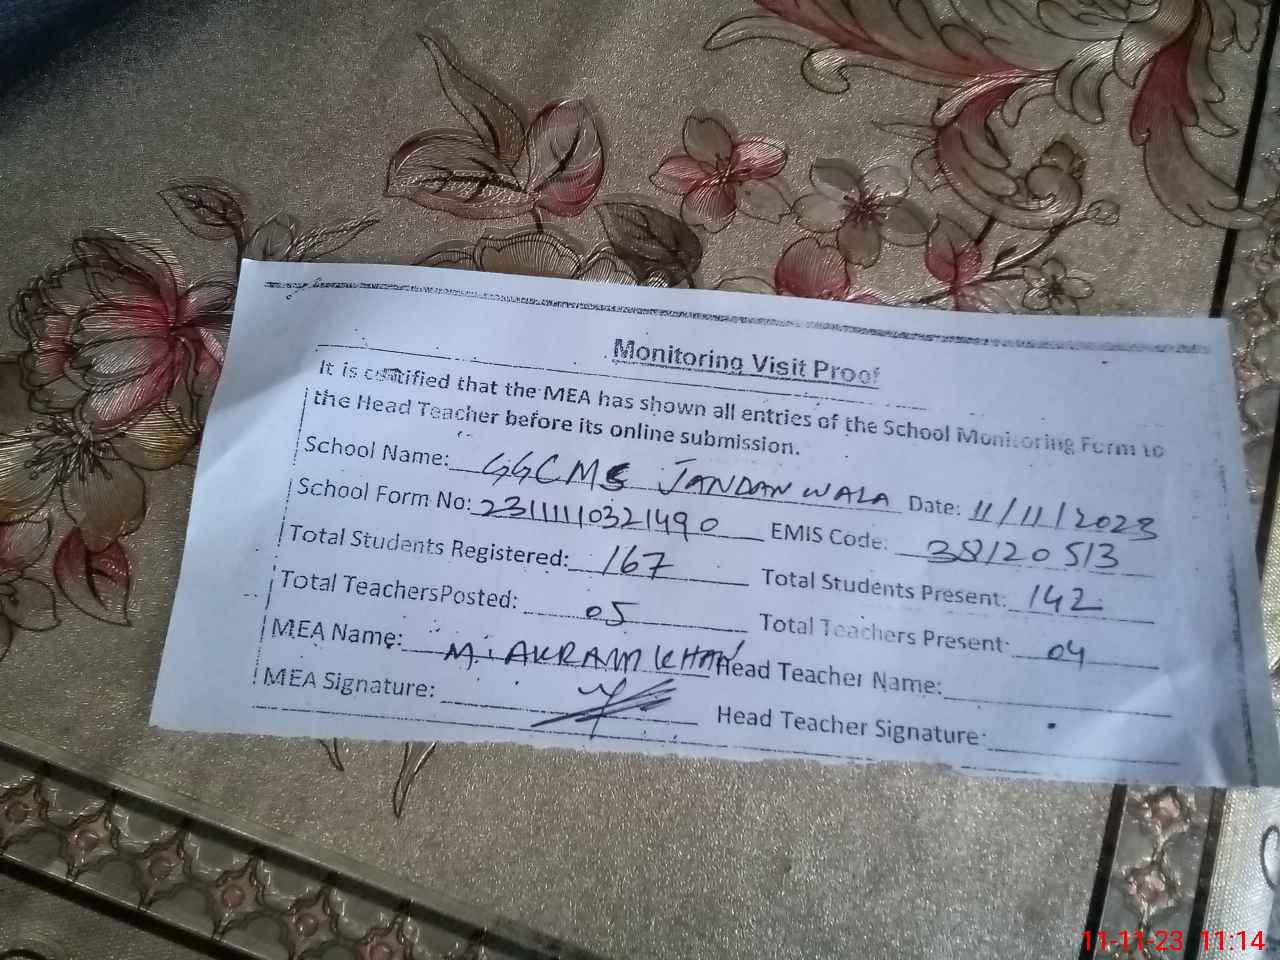 Monitoring Visit Proof
It is certified that the MEA has shown all entries of the School Monitoring Form to
the Head Teacher before its online submission.
School Name: GGCMS JANDANWALA Date: 11/11/2023
School Form No: 2311110321490 EMIS Code: 38120513
Total Students Registered: 167 Total Students Present: 142
Total TeachersPosted: 05 Total Teachers Present: 04
MEA Name: M. AKRAM KHAN Head Teacher Name:
MEA Signature: Head Teacher Signature:
11-11-23 11:14